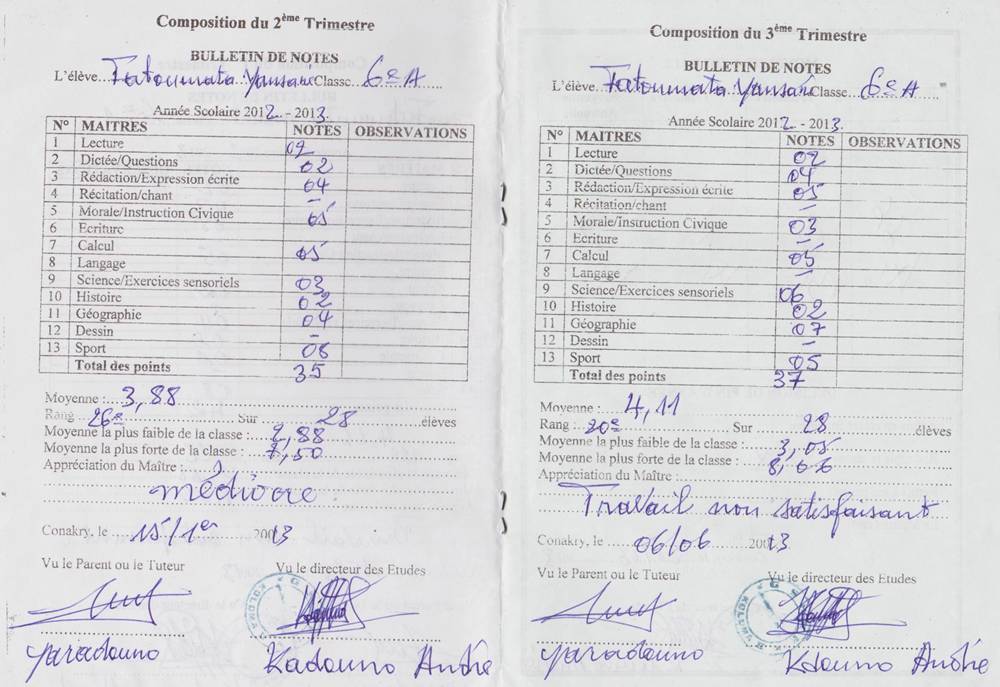 Composition du 2ème Trimestre
BULLETIN DE NOTES
L'élève Fatoumata Yansané Classe 6e A
Année Scolaire 2012 - 2013
N° MAITRES NOTES OBSERVATIONS
1 Lecture 02
2 Dictée/Questions 02
3 Rédaction/Expression écrite 04
4 Récitation/chant –
5 Morale/Instruction Civique 05
6 Ecriture
7 Calcul 05
8 Langage
9 Science/Exercices sensoriels 03
10 Histoire 02
11 Géographie 04
12 Dessin –
13 Sport 08
Total des points 35
Moyenne : 3,88
Rang 26e Sur 28 élèves
Moyenne la plus faible de la classe : 2,88
Moyenne la plus forte de la classe : 7,50
Appréciation du Maître :
médiocre
Conakry, le 15/1er 20013
Vu le Parent ou le Tuteur Vu le directeur des Etudes
Yaradouno Kadouno André
Composition du 3ème Trimestre
BULLETIN DE NOTES
L'élève Fatoumata Yansané Classe 6e A
Année Scolaire 2012 - 2013
N° MAITRES NOTES OBSERVATIONS
1 Lecture 02
2 Dictée/Questions 04
3 Rédaction/Expression écrite 05
4 Récitation/chant –
5 Morale/Instruction Civique 03
6 Ecriture –
7 Calcul 05
8 Langage –
9 Science/Exercices sensoriels 06
10 Histoire 02
11 Géographie 07
12 Dessin –
13 Sport 05
Total des points 37
Moyenne : 4,11
Rang : 20e Sur 28 élèves
Moyenne la plus faible de la classe : 3,05
Moyenne la plus forte de la classe : 8,66
Appréciation du Maître :
Travail non satisfaisant
Conakry, le 06/06 20013
Vu le Parent ou le Tuteur Vu le directeur des Etudes
Yaradouno Kdouno André